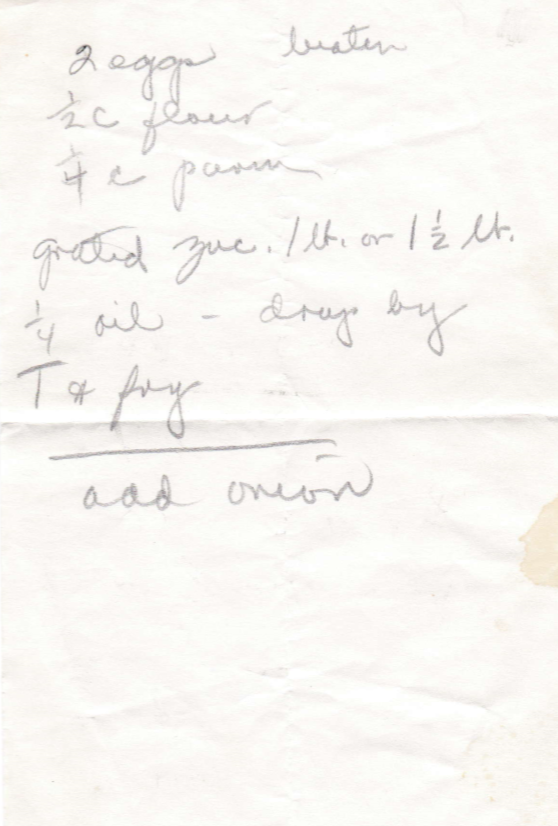 2 eggs beaten
½ c flour
¼ c parm
grated zuc. 1 lb. or 1 ½ lb.
¼ oil - drop by
T & fry
add onion